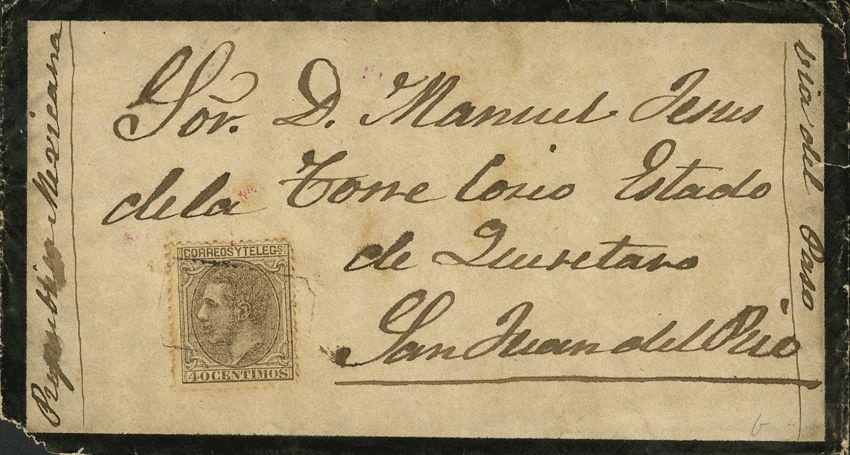 Republica Mexicana
Sõr. D. Manuel Jesus
de la Torre Cosio Estado
de Queretaro
San Juan del Rio
via del Paso
CORREOS Y TELEGS
40 CENTIMOS
6